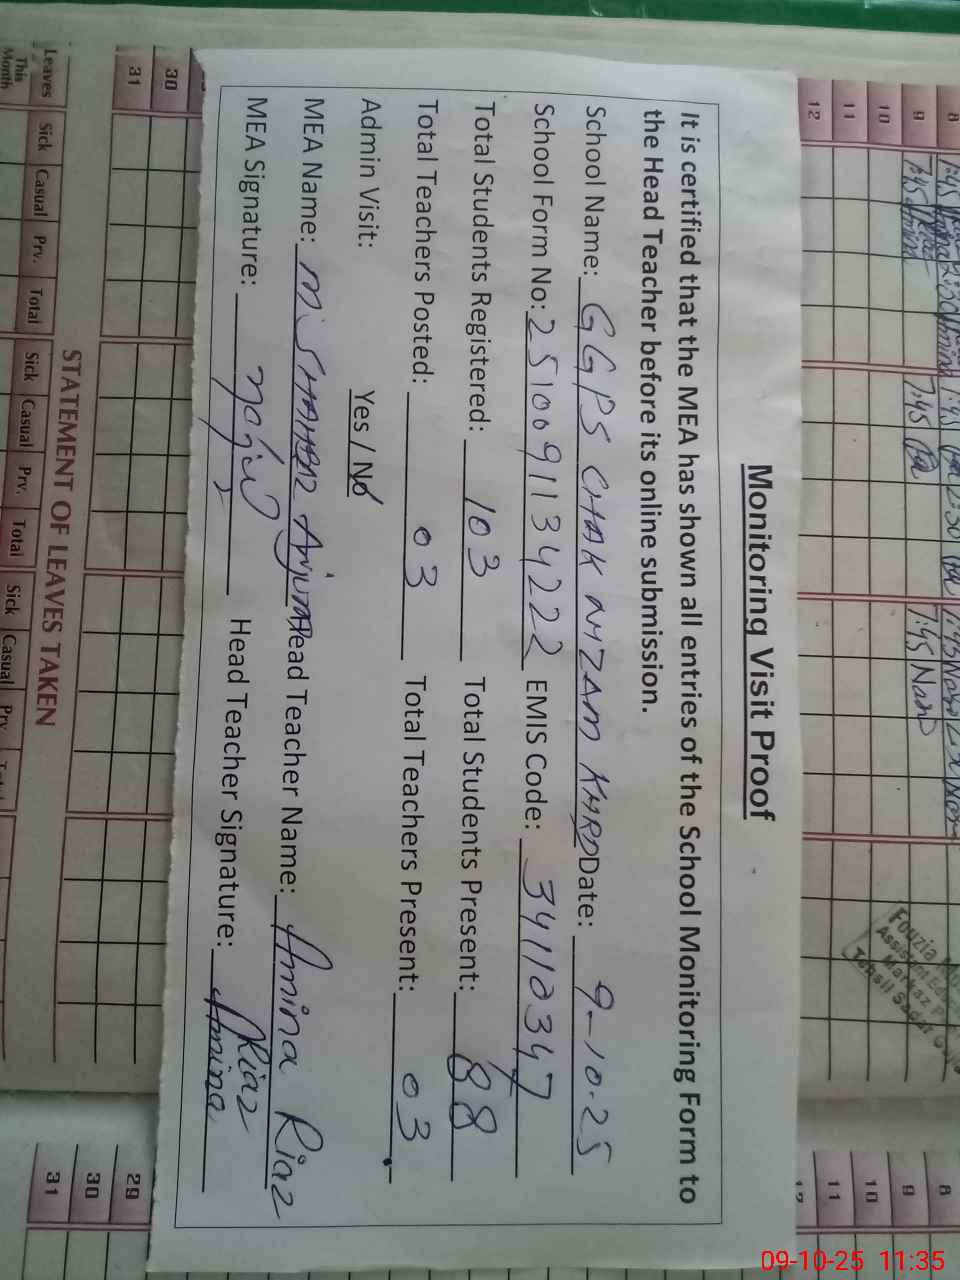 Monitoring Visit Proof
It is certified that the MEA has shown all entries of the School Monitoring Form to
the Head Teacher before its online submission.
School Name: GGPS CHAK NIZAM KHRD Date: 9-10-25
School Form No: 2510091134222 EMIS Code: 34110347
Total Students Registered: 103 Total Students Present: 88
Total Teachers Posted: 03 Total Teachers Present: 03
Admin Visit: Yes / No
MEA Name: M. Anjum Head Teacher Name: Amina Riaz
MEA Signature: Head Teacher Signature: Amina Riaz
STATEMENT OF LEAVES TAKEN
Leaves Sick Casual Prv. Total Sick Casual Prv. Total Sick Casual Prv.
This Month
30
31
8
9
10
11
12
7:45 7:45 7:45 Nan
Fouzia
Markaz
Tehsil Sadar
8
9
10
11
12
29
30
31
09-10-25 11:35